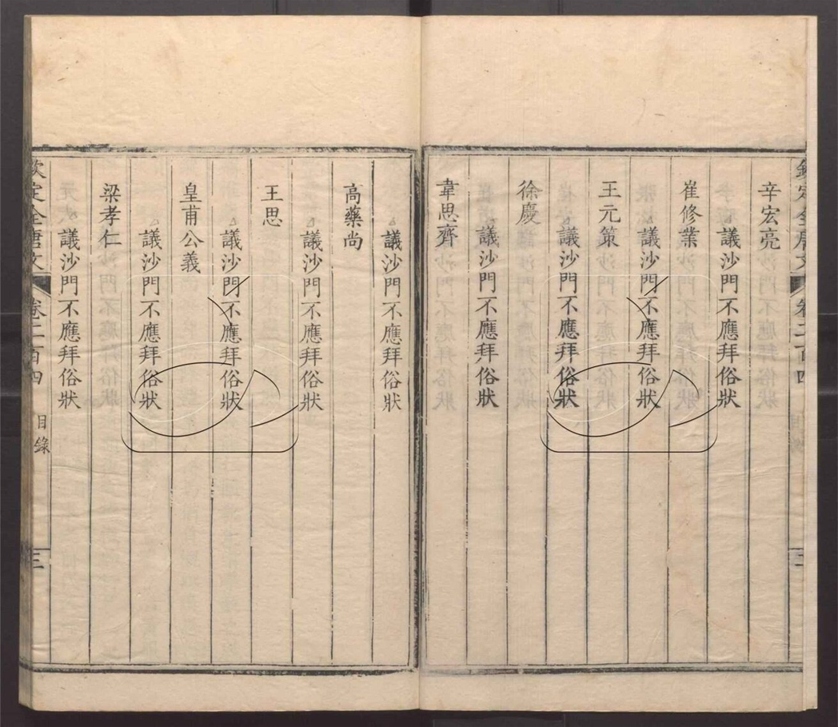 欽定全唐文 卷二百四 目錄 二
辛宏亮
議沙門不應拜俗狀
崔修業
議沙門不應拜俗狀
王元策
議沙門不應拜俗狀
徐慶
議沙門不應拜俗狀
韋思齊
議沙門不應拜俗狀
高藥尚
議沙門不應拜俗狀
王思
議沙門不應拜俗狀
皇甫公義
議沙門不應拜俗狀
梁孝仁
議沙門不應拜俗狀
欽定全唐文 卷二百四 目錄 三